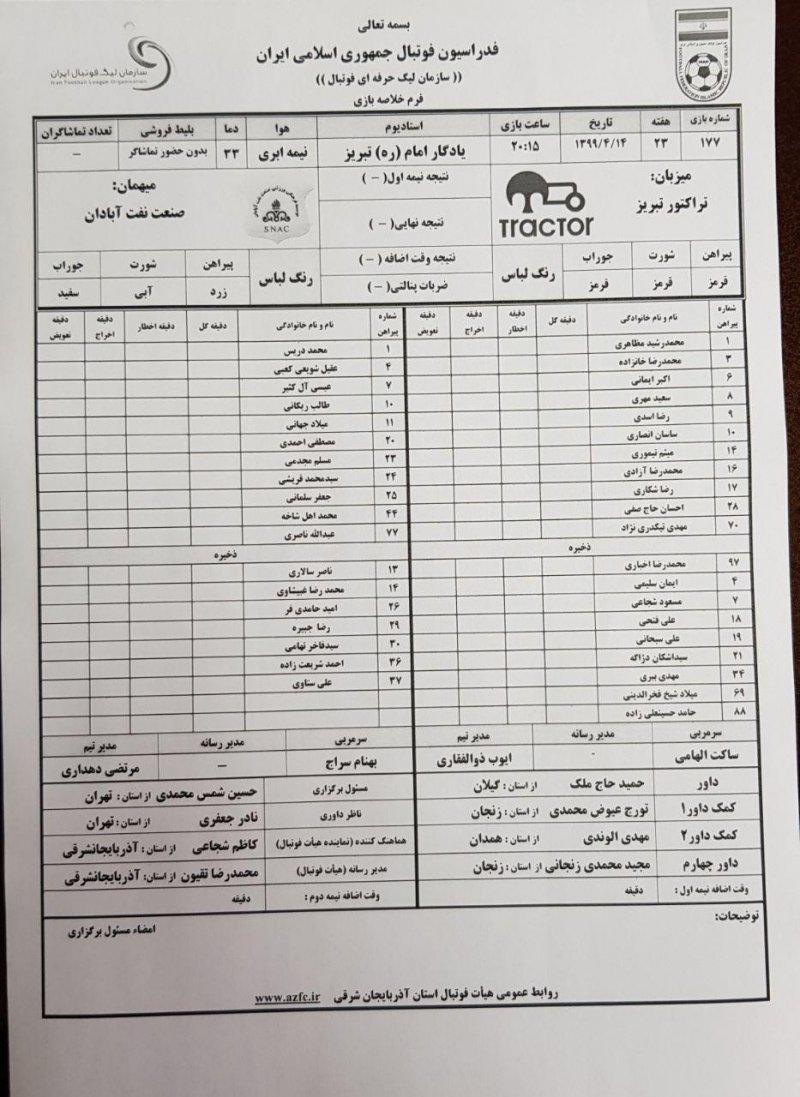 بسمه تعالی
فدراسیون فوتبال جمهوری اسلامی ایران
(( سازمان لیگ حرفه ای فوتبال ))
فرم خلاصه بازی
سازمان لیگ فوتبال ایران
Iran Football League Organization
FOOTBALL FEDERATION ISLAMIC REPUBLIC OF IRAN
شماره بازی هفته تاریخ ساعت بازی استادیوم هوا دما بلیط فروشی تعداد تماشاگران
۱۷۷ ۲۳ ۱۳۹۹/۴/۱۴ ۲۰:۱۵ یادگار امام (ره) تبریز نیمه ابری ۳۳ بدون حضور تماشاگر –
میزبان: تراکتور تبریز
TRACTOR
نتیجه نیمه اول( – )
نتیجه نهایی( – )
نتیجه وقت اضافه( – )
ضربات پنالتی( – )
میهمان: صنعت نفت آبادان
SNAC
پیراهن شورت جوراب رنگ لباس
قرمز قرمز قرمز
رنگ لباس پیراهن شورت جوراب
زرد آبی سفید
شماره پیراهن نام و نام خانوادگی دقیقه گل دقیقه اخطار دقیقه اخراج دقیقه تعویض
۱ محمدرشید مظاهری
۳ محمدرضا خانزاده
۶ اکبر ایمانی
۸ سعید مهری
۹ رضا اسدی
۱۰ ساسان انصاری
۱۴ میثم تیموری
۱۶ محمدرضا آزادی
۱۷ رضا شکاری
۲۸ احسان حاج صفی
۷۰ مهدی تیکدری نژاد
ذخیره
۹۷ محمدرضا اخباری
۴ ایمان سلیمی
۷ مسعود شجاعی
۱۸ علی فتحی
۱۹ علی سبحانی
۲۱ سیداشکان دژاگه
۳۴ مهدی ببری
۶۹ میلاد شیخ فخرالدینی
۸۸ حامد حسینعلی زاده
شماره پیراهن نام و نام خانوادگی دقیقه گل دقیقه اخطار دقیقه اخراج دقیقه تعویض
۱ محمد دریس
۴ عقیل شویعی کعبی
۷ عیسی آل کثیر
۱۰ طالب ریکانی
۱۱ میلاد جهانی
۲۰ مصطفی احمدی
۲۳ مسلم مجدمی
۲۴ سیدمحمد قریشی
۲۵ جعفر سلمانی
۴۴ محمد اهل شاخه
۷۷ عبدالله ناصری
ذخیره
۱۳ ناصر سالاری
۱۴ محمد رضا غبیشاوی
۲۶ امید حامدی فر
۲۹ رضا جبیره
۳۰ سیدفاخر تهامی
۳۶ احمد شریعت زاده
۳۷ علی سناوی
سرمربی مدیر رسانه مدیر تیم
ساکت الهامی - ایوب ذوالفقاری
سرمربی مدیر رسانه مدیر تیم
بهنام سراج – مرتضی دهداری
داور حمید حاج ملک از استان : گیلان
کمک داور۱ تورج عیوض محمدی از استان : زنجان
کمک داور۲ مهدی الوندی از استان : همدان
داور چهارم مجید محمدی زنجانی از استان : زنجان
وقت اضافه نیمه اول : دقیقه
مسئول برگزاری حسین شمس محمدی از استان : تهران
ناظر داوری نادر جعفری از استان : تهران
هماهنگ کننده (نماینده هیأت فوتبال) کاظم شجاعی از استان : آذربایجانشرقی
مدیر رسانه (هیأت فوتبال) محمدرضا تقیون از استان: آذربایجانشرقی
وقت اضافه نیمه دوم : دقیقه
توضیحات:
امضاء مسئول برگزاری
روابط عمومی هیأت فوتبال استان آذربایجان شرقی www.azfc.ir